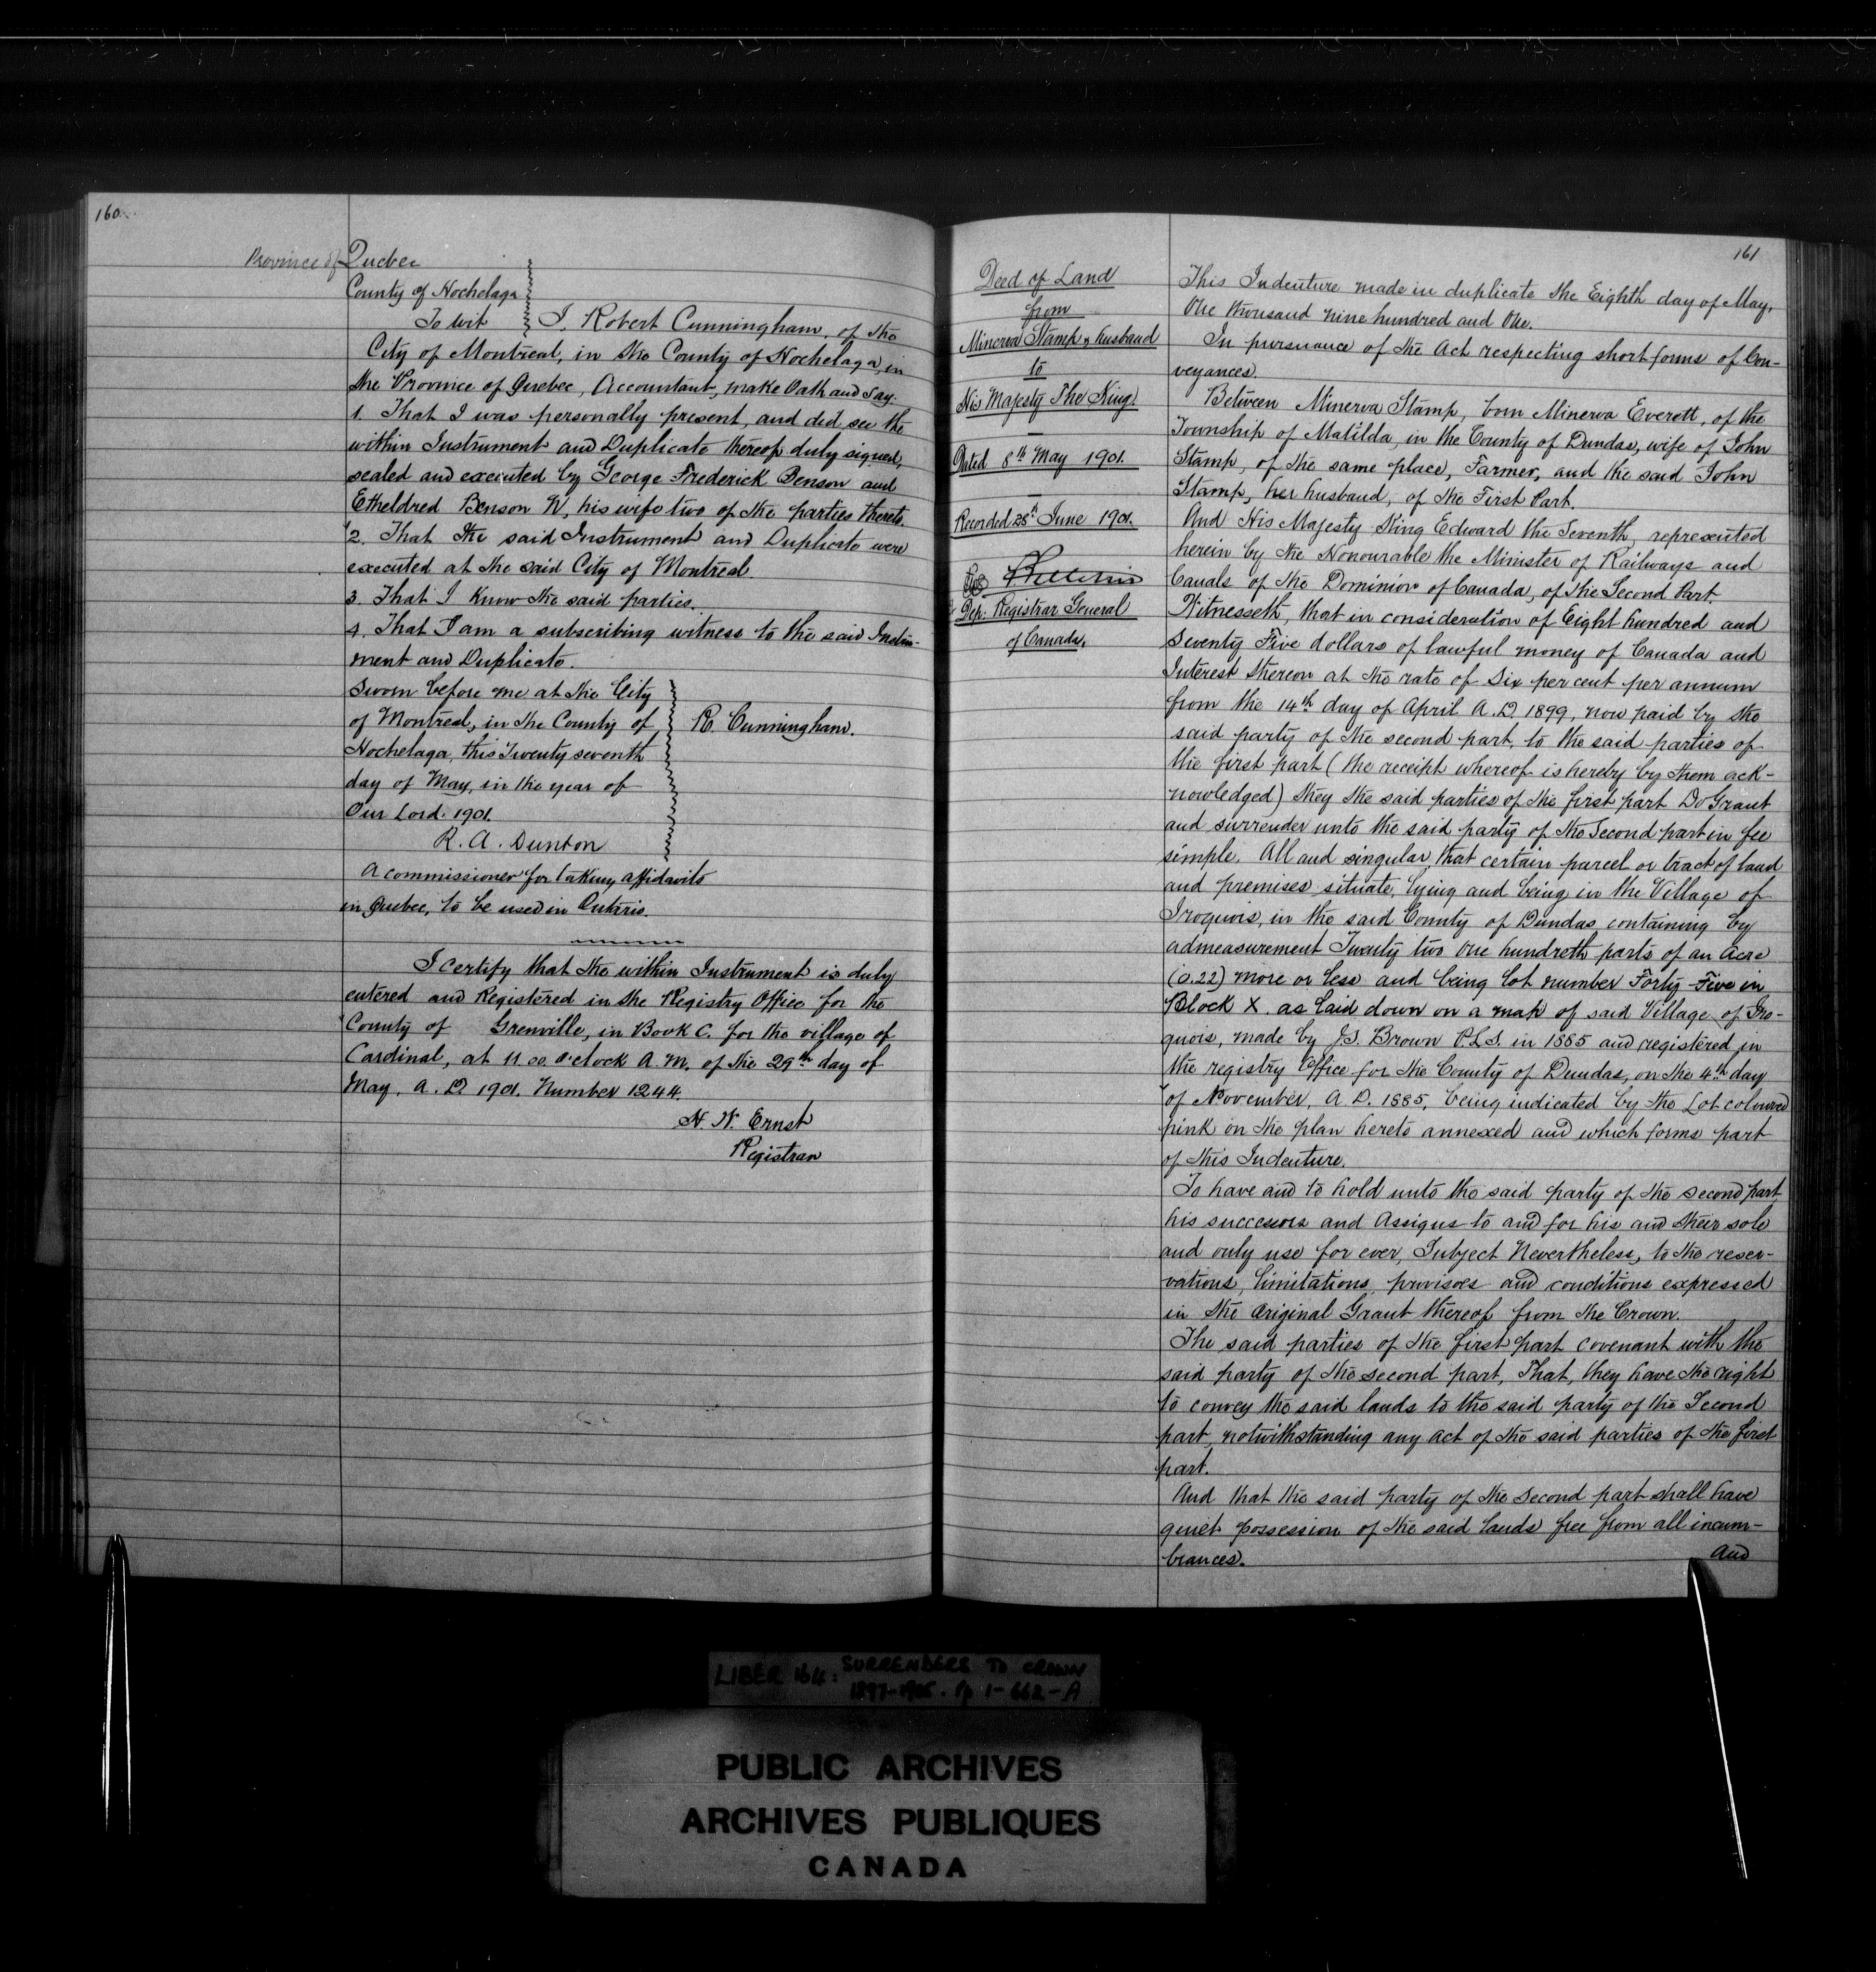 160
Province of Quebec
County of Hochelaga
To wit
I, Robert Cunningham, of the
City of Montreal, in the County of Hochelaga, in
the Province of Quebec, Accountant, make Oath and Say:
1. That I was personally present, and did see the
within Instrument and Duplicate thereof duly signed,
sealed and executed by George Frederick Benson and
Etheldred Benson W, his wife two of the parties thereto.
2. That the said Instrument and Duplicate were
executed at the said City of Montreal.
3. That I know the said parties.
4. That I am a subscribing witness to the said Instru-
ment and Duplicate.
Sworn before me at the City
of Montreal, in the County of
Hochelaga, this Twenty seventh
day of May, in the year of
Our Lord. 1901.
R. Cunningham.
R. A. Dunton
A commissioner for taking affidavits
in Quebec, to be used in Ontario.
I certify that the within Instrument is duly
entered and Registered in the Registry Office for the
County of Grenville, in Book C. for the village of
Cardinal, at 11.00 o'clock A.M. of the 29th day of
May, A.D. 1901. Number 1244.
H. W. Ernst
Registrar
161
Deed of Land
from
Minerva Stamp & husband
to
His Majesty The King.
Dated 8th May 1901.
Recorded 28th June 1901.
Dep. Registrar General
of Canada.
This Indenture made in duplicate the Eighth day of May,
One thousand nine hundred and One.
In pursuance of the Act respecting short forms of Con-
veyances.
Between Minerva Stamp, born Minerva Everett, of the
Township of Matilda, in the County of Dundas, wife of John
Stamp, of the same place, Farmer, and the said John
Stamp, her husband, of the First Part.
And His Majesty King Edward the Seventh, represented
herein by the Honourable the Minister of Railways and
Canals of the Dominion of Canada, of the Second Part.
Witnesseth, that in consideration of Eight hundred and
Seventy Five dollars of lawful money of Canada and
Interest thereon at the rate of Six per cent per annum
from the 14th day of April A.D. 1899, now paid by the
said party of the second part, to the said parties of
the first part (the receipt whereof is hereby by them ack-
nowledged) they the said parties of the first part Do Grant
and surrender unto the said party of the Second part in fee
simple. All and singular that certain parcel or tract of land
and premises situate, lying and being in the Village of
Iroquois, in the said County of Dundas containing by
admeasurement Twenty two One hundredth parts of an Acre
(0.22) more or less and being lot number Forty-Five in
Block X. as laid down on a map of said Village of Iro-
quois, made by J.S. Brown P.L.S. in 1885 and registered in
the registry Office for the County of Dundas, on the 4th day
of November, A.D. 1885, being indicated by the Lot coloured
pink on the plan hereto annexed and which forms part
of this Indenture.
To have and to hold unto the said party of the second part
his successors and Assigns to and for his and their sole
and only use for ever, Subject Nevertheless, to the reser-
vations, limitations, provisoes and conditions expressed
in the Original Grant thereof from the Crown.
The said parties of the first part covenant with the
said party of the second part, That, they have the right
to convey the said lands to the said party of the Second
part, notwithstanding any act of the said parties of the first
part.
And that the said party of the second part shall have
quiet possession of the said lands free from all incum-
brances.
And
LIBER 164: SURRENDERS TO CROWN
1897-1905. Pp 1-662-A
PUBLIC ARCHIVES
ARCHIVES PUBLIQUES
CANADA